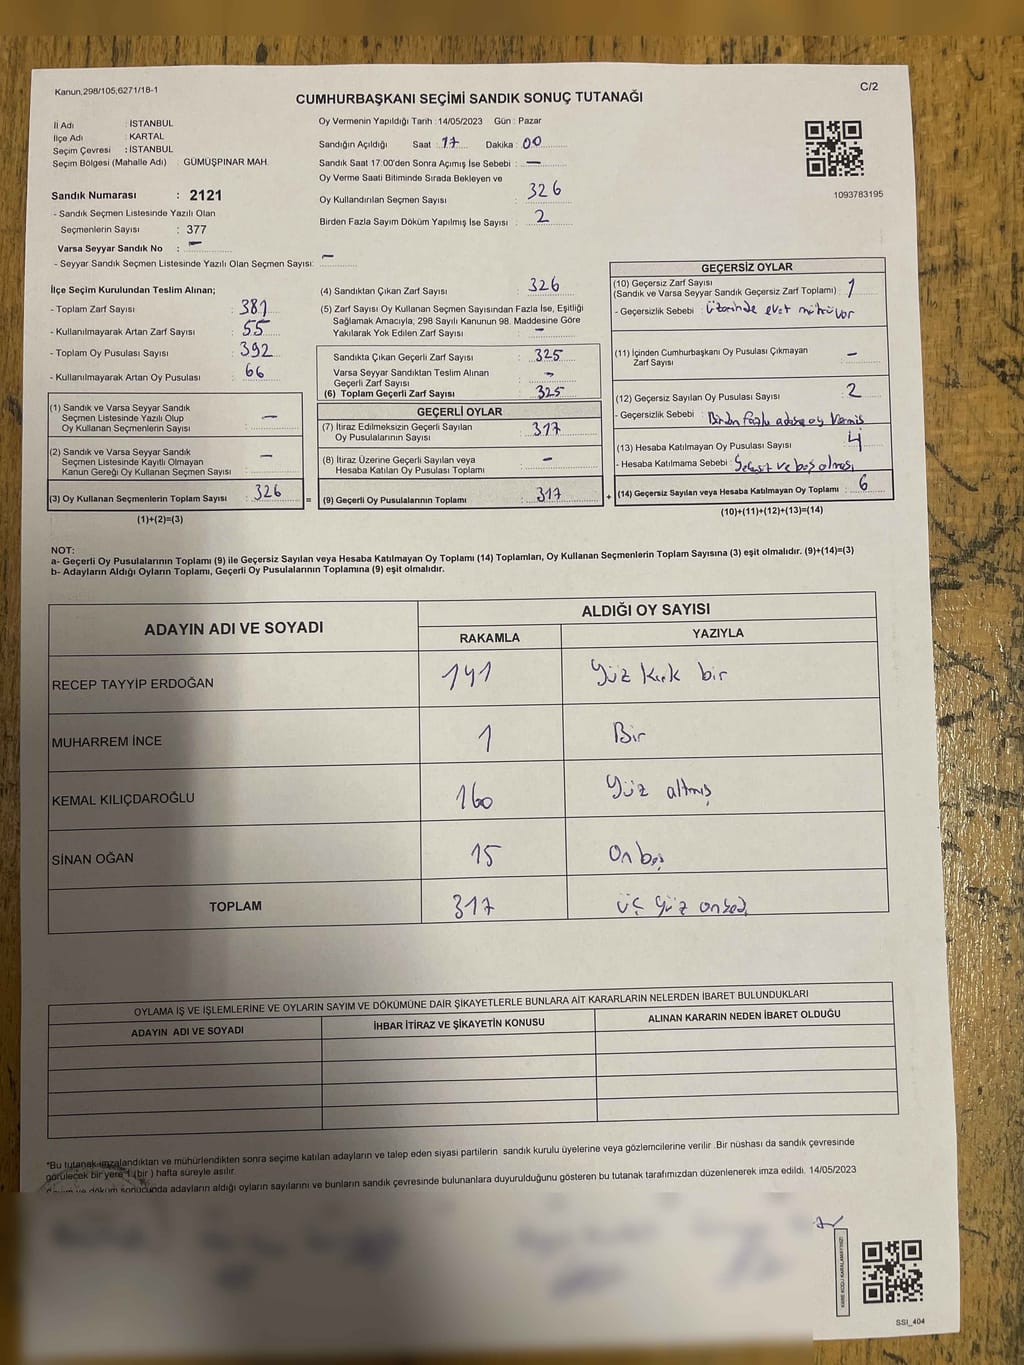 Kanun,298/105,6271/18-1
C/2
CUMHURBAŞKANI SEÇİMİ SANDIK SONUÇ TUTANAĞI
İl Adı : İSTANBUL
İlçe Adı : KARTAL
Seçim Çevresi : İSTANBUL
Seçim Bölgesi (Mahalle Adı) : GÜMÜŞPINAR MAH.
Sandık Numarası : 2121
- Sandık Seçmen Listesinde Yazılı Olan
Seçmenlerin Sayısı : 377
Varsa Seyyar Sandık No : –
- Seyyar Sandık Seçmen Listesinde Yazılı Olan Seçmen Sayısı: –
Oy Vermenin Yapıldığı Tarih :14/05/2023 Gün : Pazar
Sandığın Açıldığı Saat : 17 Dakika : 00
Sandık Saat 17:00'den Sonra Açımış İse Sebebi : –
Oy Verme Saati Bitiminde Sırada Bekleyen ve
Oy Kullandırılan Seçmen Sayısı : 326
Birden Fazla Sayım Döküm Yapılmış İse Sayısı : 2
1093783195
İlçe Seçim Kurulundan Teslim Alınan;
- Toplam Zarf Sayısı : 381
- Kullanılmayarak Artan Zarf Sayısı : 55
- Toplam Oy Pusulası Sayısı : 392
- Kullanılmayarak Artan Oy Pusulası : 66
(1) Sandık ve Varsa Seyyar Sandık
Seçmen Listesinde Yazılı Olup
Oy Kullanan Seçmenlerin Sayısı : –
(2) Sandık ve Varsa Seyyar Sandık
Seçmen Listesinde Kayıtlı Olmayan
Kanun Gereği Oy Kullanan Seçmen Sayısı : –
(3) Oy Kullanan Seçmenlerin Toplam Sayısı : 326
=
(1)+(2)=(3)
(4) Sandıktan Çıkan Zarf Sayısı : 326
(5) Zarf Sayısı Oy Kullanan Seçmen Sayısından Fazla İse, Eşitliği
Sağlamak Amacıyla; 298 Sayılı Kanunun 98. Maddesine Göre
Yakılarak Yok Edilen Zarf Sayısı : –
Sandıkta Çıkan Geçerli Zarf Sayısı : 325
Varsa Seyyar Sandıktan Teslim Alınan
Geçerli Zarf Sayısı : –
(6) Toplam Geçerli Zarf Sayısı : 325
GEÇERLİ OYLAR
(7) İtiraz Edilmeksizin Geçerli Sayılan
Oy Pusulalarının Sayısı : 317
(8) İtiraz Üzerine Geçerli Sayılan veya
Hesaba Katılan Oy Pusulası Toplamı : –
(9) Geçerli Oy Pusulalarının Toplamı : 317
+
GEÇERSİZ OYLAR
(10) Geçersiz Zarf Sayısı
(Sandık ve Varsa Seyyar Sandık Geçersiz Zarf Toplamı) : 1
- Geçersizlik Sebebi : Üzerinde evet mührü var
(11) İçinden Cumhurbaşkanı Oy Pusulası Çıkmayan
Zarf Sayısı : –
(12) Geçersiz Sayılan Oy Pusulası Sayısı : 2
- Geçersizlik Sebebi : Birden fazla adaya oy vermiş
(13) Hesaba Katılmayan Oy Pusulası Sayısı : 4
- Hesaba Katılmama Sebebi : ve boş olması
(14) Geçersiz Sayılan veya Hesaba Katılmayan Oy Toplamı : 6
(10)+(11)+(12)+(13)=(14)
NOT:
a- Geçerli Oy Pusulalarının Toplamı (9) ile Geçersiz Sayılan veya Hesaba Katılmayan Oy Toplamı (14) Toplamları, Oy Kullanan Seçmenlerin Toplam Sayısına (3) eşit olmalıdır. (9)+(14)=(3)
b- Adayların Aldığı Oyların Toplamı, Geçerli Oy Pusulalarının Toplamına (9) eşit olmalıdır.
ADAYIN ADI VE SOYADI ALDIĞI OY SAYISI
RAKAMLA YAZIYLA
RECEP TAYYİP ERDOĞAN 141 Yüz kırk bir
MUHARREM İNCE 1 Bir
KEMAL KILIÇDAROĞLU 160 Yüz altmış
SİNAN OĞAN 15 On beş
TOPLAM 317 üç yüz onyedi
OYLAMA İŞ VE İŞLEMLERİNE VE OYLARIN SAYIM VE DÖKÜMÜNE DAİR ŞİKAYETLERLE BUNLARA AİT KARARLARIN NELERDEN İBARET BULUNDUKLARI
ADAYIN ADI VE SOYADI İHBAR İTİRAZ VE ŞİKAYETİN KONUSU ALINAN KARARIN NEDEN İBARET OLDUĞU
*Bu tutanak imzalandıktan ve mühürlendikten sonra seçime katılan adayların ve talep eden siyasi partilerin sandık kurulu üyelerine veya gözlemcilerine verilir. Bir nüshası da sandık çevresinde
görülecek bir yere 1 (bir) hafta süreyle asılır.
Sayım ve döküm sonucunda adayların aldığı oyların sayılarını ve bunların sandık çevresinde bulunanlara duyurulduğunu gösteren bu tutanak tarafımızdan düzenlenerek imza edildi. 14/05/2023
KARE KODU KARALAMAYINIZ!
SSI_404